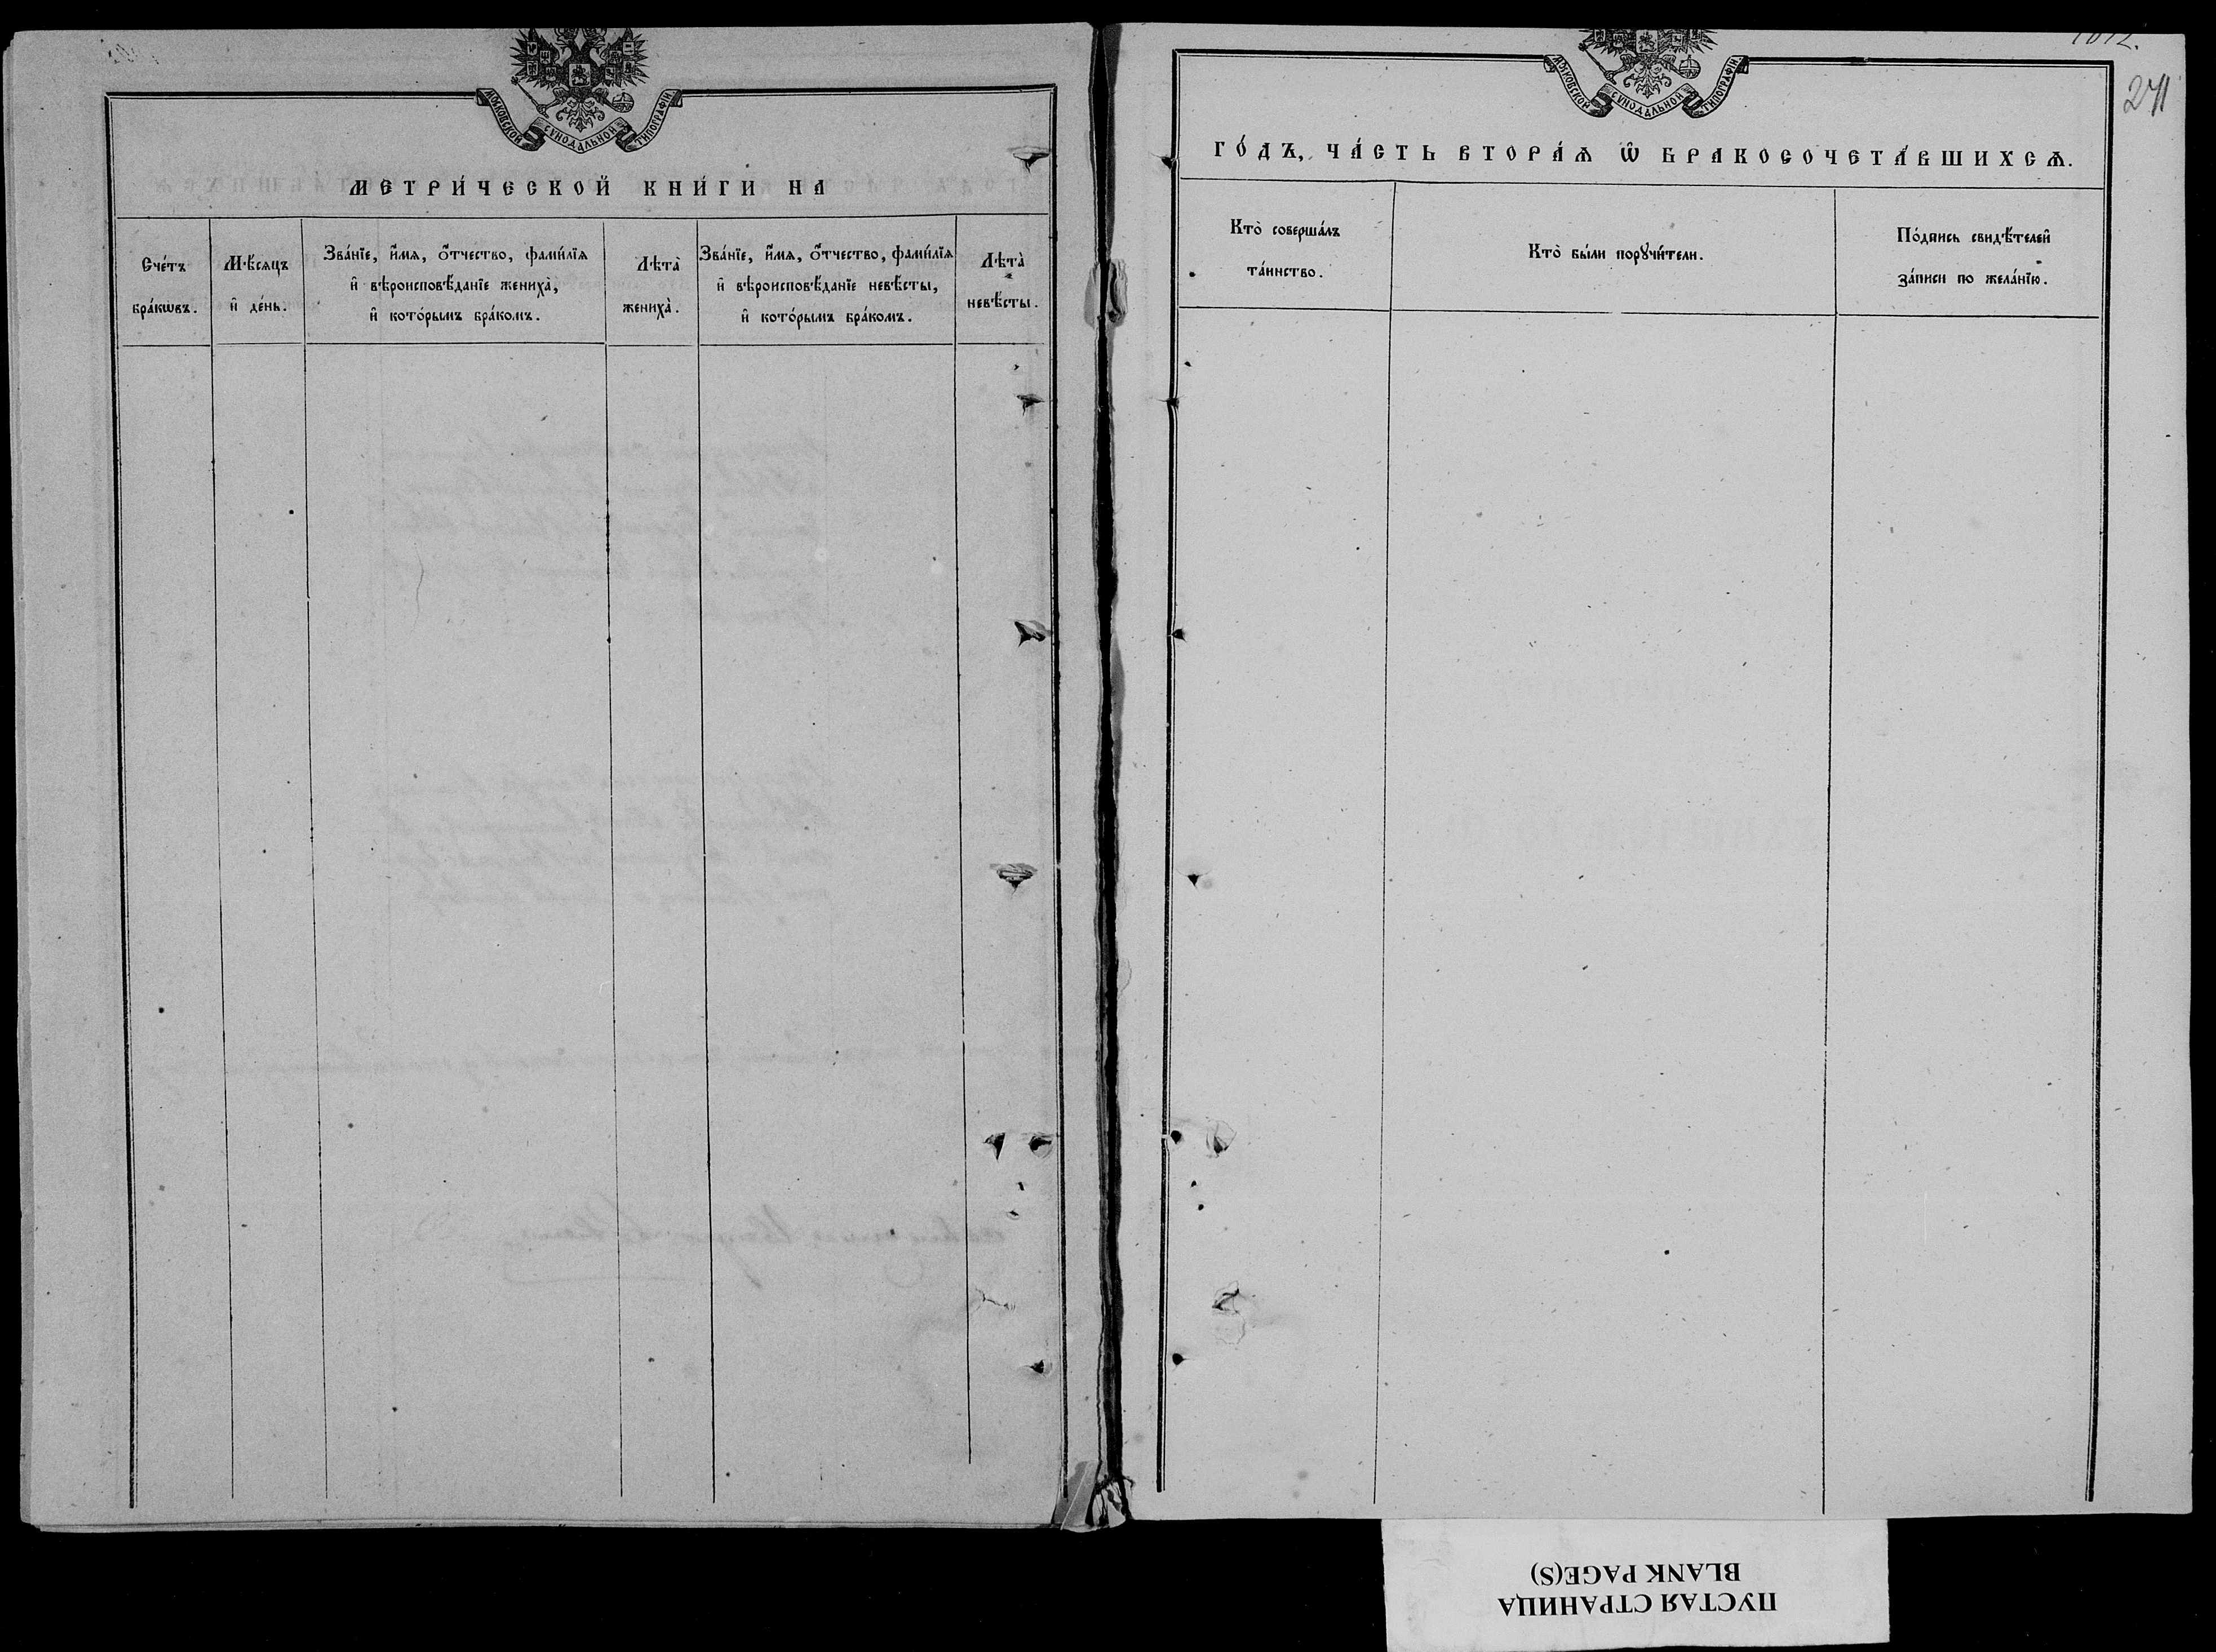 МОСКОВСКОЙ СѴНОДАЛЬНОЙ ТИПОГРАФІИ
МЕТРИ́ЧЕСКОЙ КНИ́ГИ НА
Сче́тъ
бра́кѡвъ.
Мѣ́сяцъ
и҆ де́нь.
Зва́нїе, и҆́мя, ѻ҆́тчество, фами́лїя
и҆ вѣроисповѣ́данїе жениха̀,
и҆ кото́рымъ бра́комъ.
Лѣта̀
жениха̀.
Зва́нїе, и҆́мя, ѻ҆́тчество, фами́лїя
и҆ вѣроисповѣ́данїе невѣ́сты,
и҆ кото́рымъ бра́комъ.
Лѣта̀
невѣ́сты.
241
МОСКОВСКОЙ СѴНОДАЛЬНОЙ ТИПОГРАФІИ
ГО́ДЪ, ЧА́СТЬ ВТОРА́Ѧ Ѡ҆ БРАКОСОЧЕТА́ВШИХСѦ.
Кто̀ соверша́лъ
та́инство.
Кто̀ бы́ли порꙋчи́тели.
По́дпись свидѣ́телей
за́писи по жела́нїю.
ПУСТАЯ СТРАНИЦА
BLANK PAGE(S)